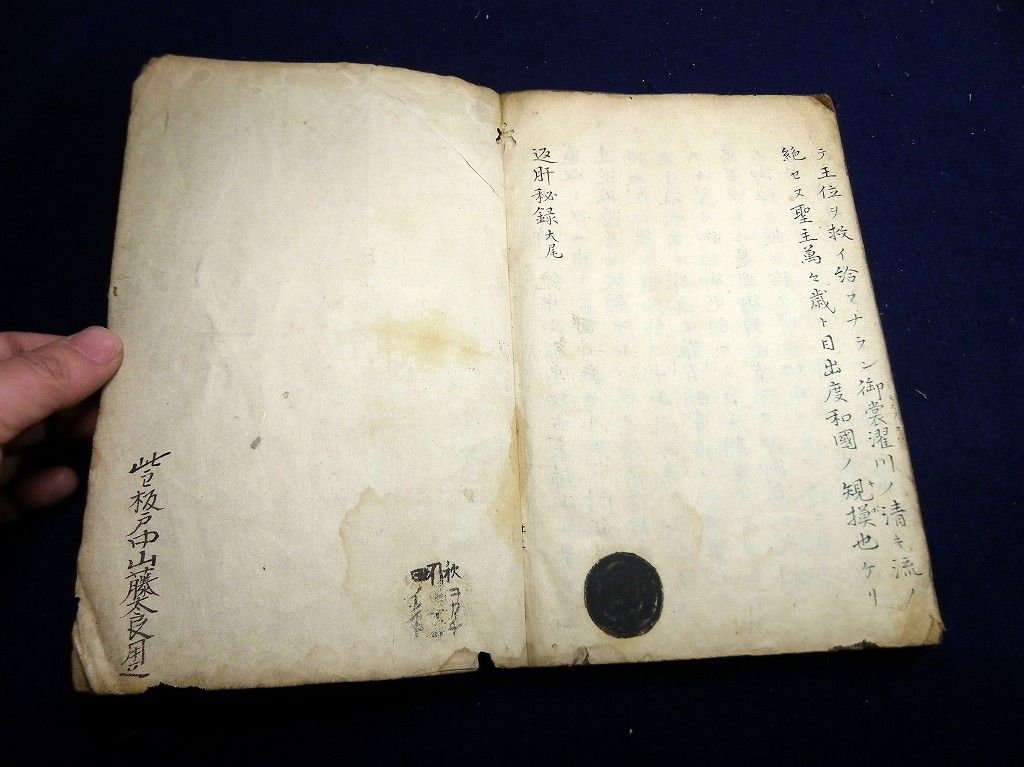 テ王位ヲ救イ給フナラン御裳濯川ノ清キ流ノ
絶セヌ聖主萬々歳ト目出度和國ノ規模也ケリ
返肝秘録大尾
秋
板戸中山藤太良用